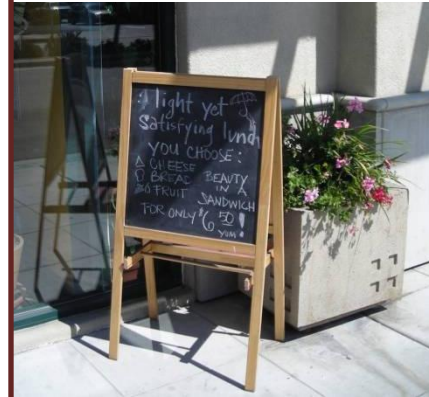 A light yet
satisfying lunch
YOU CHOOSE:
CHEESE
BREAD
FRUIT
BEAUTY
IN A
SANDWICH
FOR ONLY $6 50!
YUM!